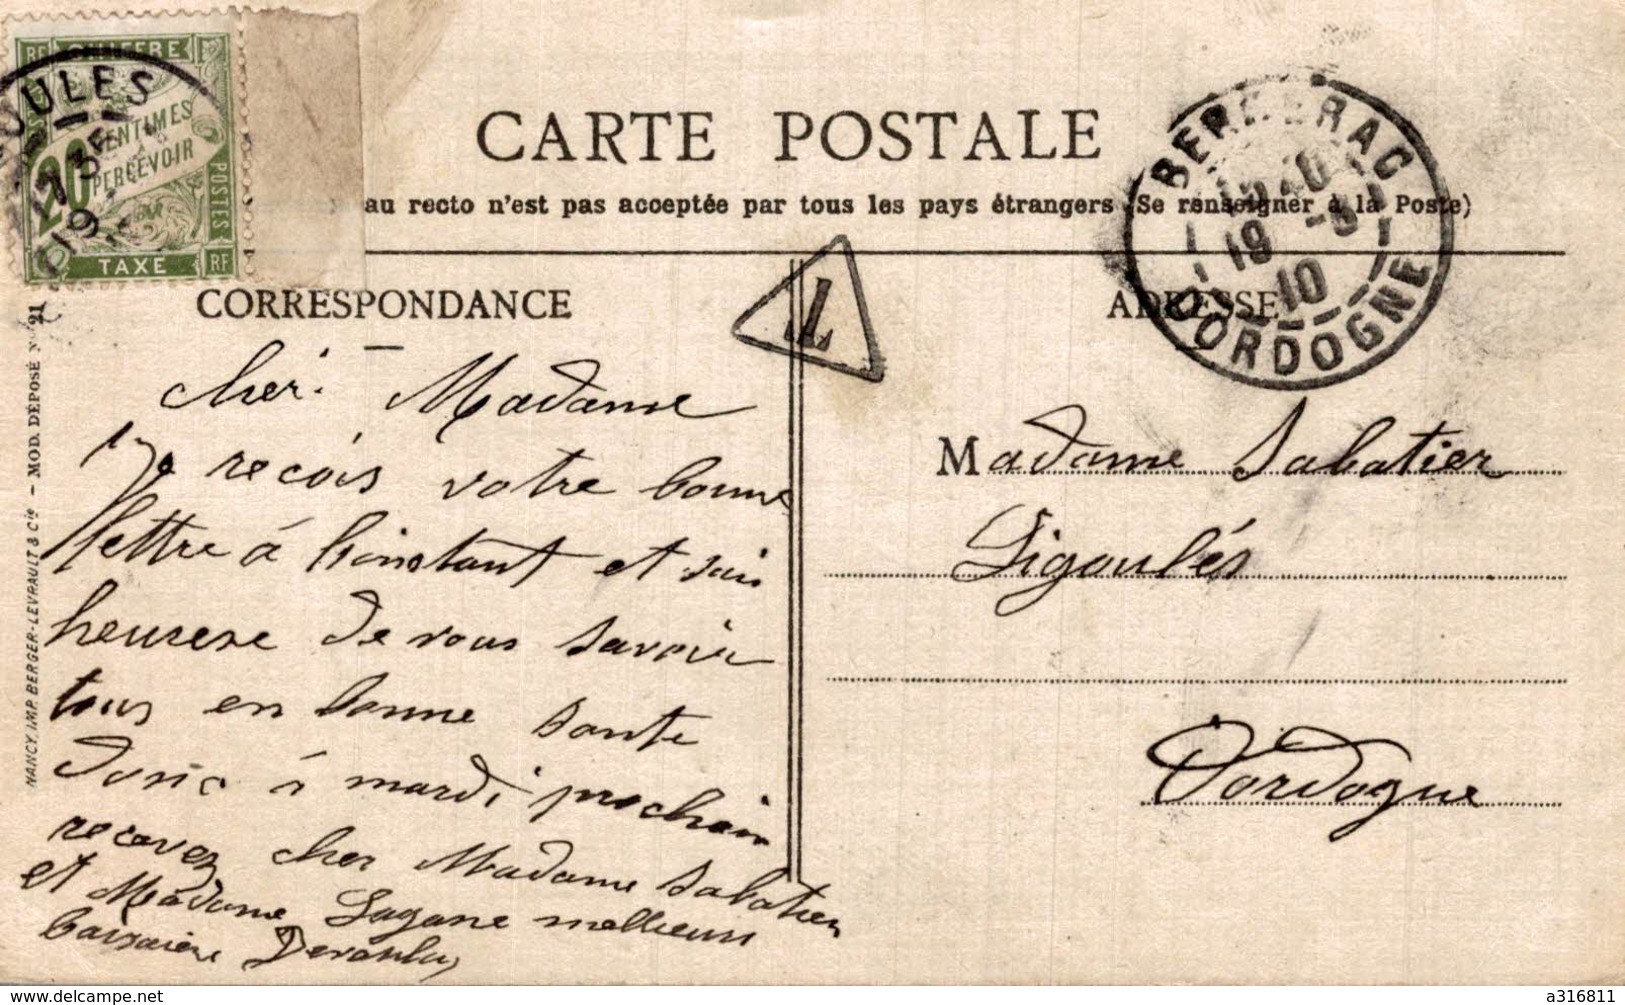 RF CHIFFRE
20 CENTIMES
PERCEVOIR
POSTES
TAXE RF
OULES
CARTE POSTALE
au recto n'est pas acceptée par tous les pays étrangers (Se renseigner à la Poste)
BERGERAC
19 -5
10
DORDOGNE
T
CORRESPONDANCE
ADRESSE
NANCY, IMP. BERGER-LEVRAULT & Cie — MOD. DÉPOSÉ N° 21
cher Madame
Je reçois votre bonne
lettre à linstant et suis
heurese de vous savoir
tous en bonne sante
donc à mardi prochain
recevez cher Madame Sabatier
et Madame Lagane mellieurs
Madame Sabatier
Ligoulés
Dordogne
www.delcampe.net
a316811